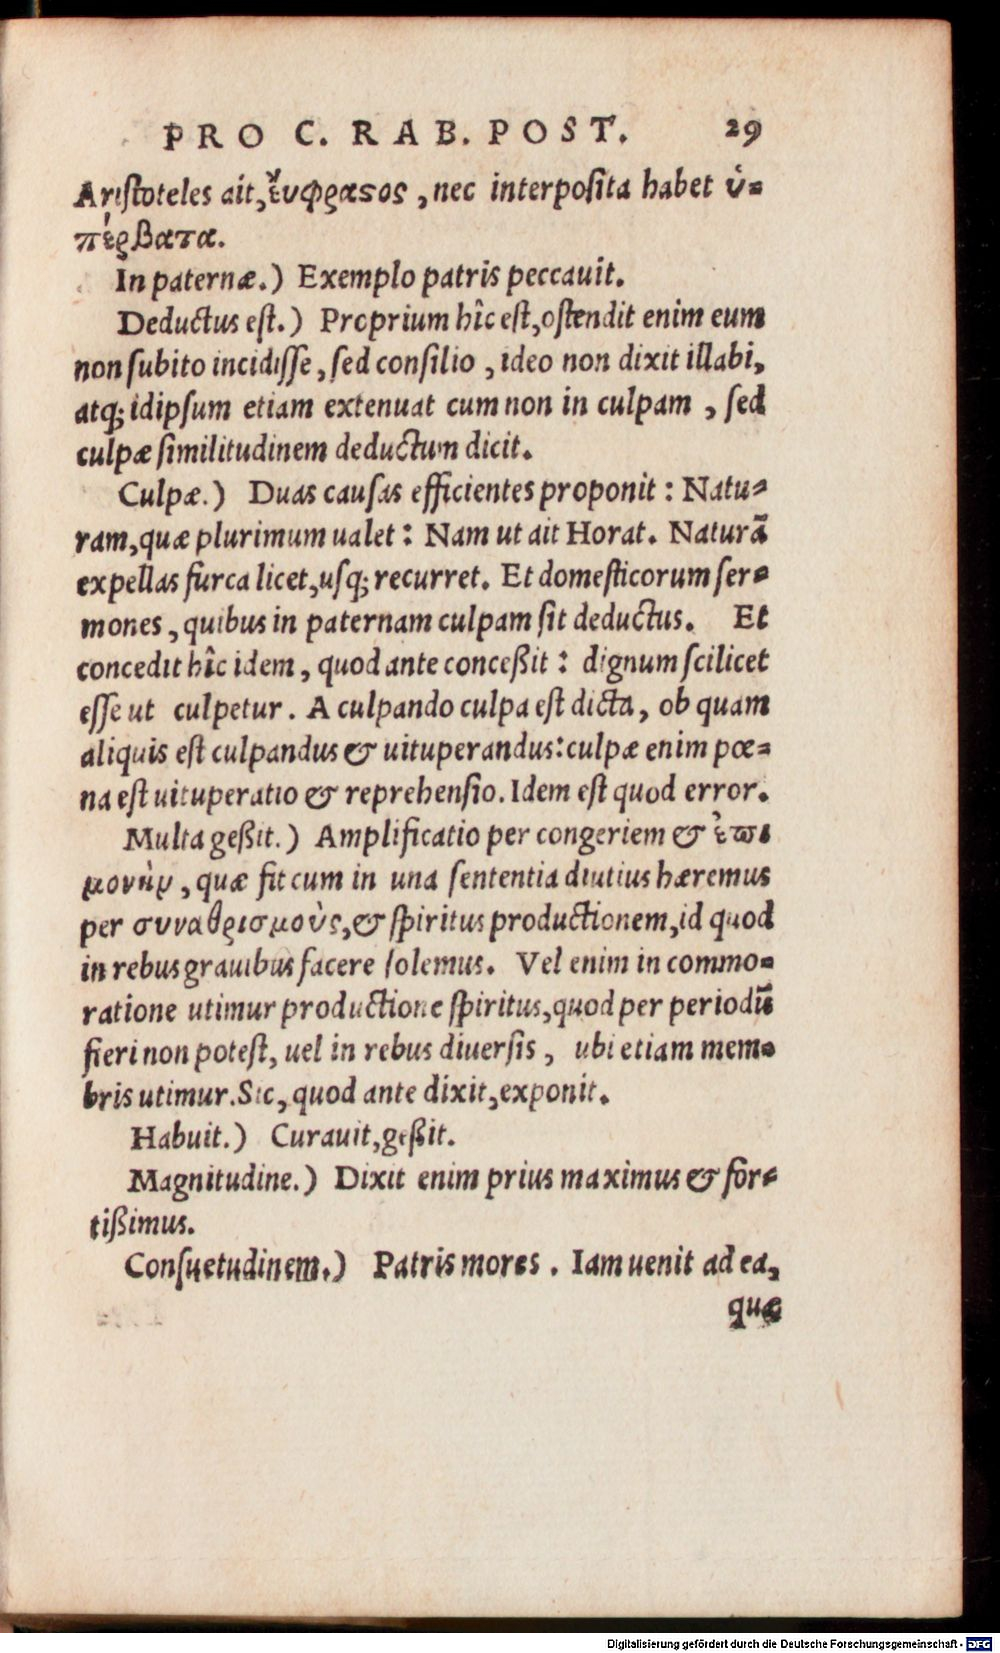 PRO C. RAB. POST. 29
Aristoteles ait, ἔυφρασος, nec interposita habet ὑ-
πέρβατα.
In paternæ.) Exemplo patris peccauit.
Deductus est.) Proprium hîc est, ostendit enim eum
non subito incidisse, sed consilio, ideo non dixit illabi,
atq; idipsum etiam extenuat cum non in culpam, sed
culpæ similitudinem deductum dicit.
Culpæ.) Duas causas efficientes proponit: Natu-
ram, quæ plurimum ualet: Nam ut ait Horat. Naturã
expellas furca licet, usq; recurret. Et domesticorum ser-
mones, quibus in paternam culpam sit deductus. Et
concedit hîc idem, quod ante conceßit: dignum scilicet
esse ut culpetur. A culpando culpa est dicta, ob quam
aliquis est culpandus & uituperandus: culpæ enim pœ-
na est uituperatio & reprehensio. Idem est quod error.
Multa geßit.) Amplificatio per congeriem & ἐπι
μονὴν, quæ fit cum in una sententia diutius hæremus
per συναθρισμοὺς, & spiritus productionem, id quod
in rebus grauibus facere solemus. Vel enim in commo-
ratione utimur productione spiritus, quod per periodũ
fieri non potest, uel in rebus diuersis, ubi etiam mem-
bris utimur. Sic, quod ante dixit, exponit.
Habuit.) Curauit, geßit.
Magnitudine.) Dixit enim prius maximus & for-
tißimus.
Consuetudinem.) Patris mores. Iam uenit ad ea,
quæ
Digitalisierung gefördert durch die Deutsche Forschungsgemeinschaft - DFG